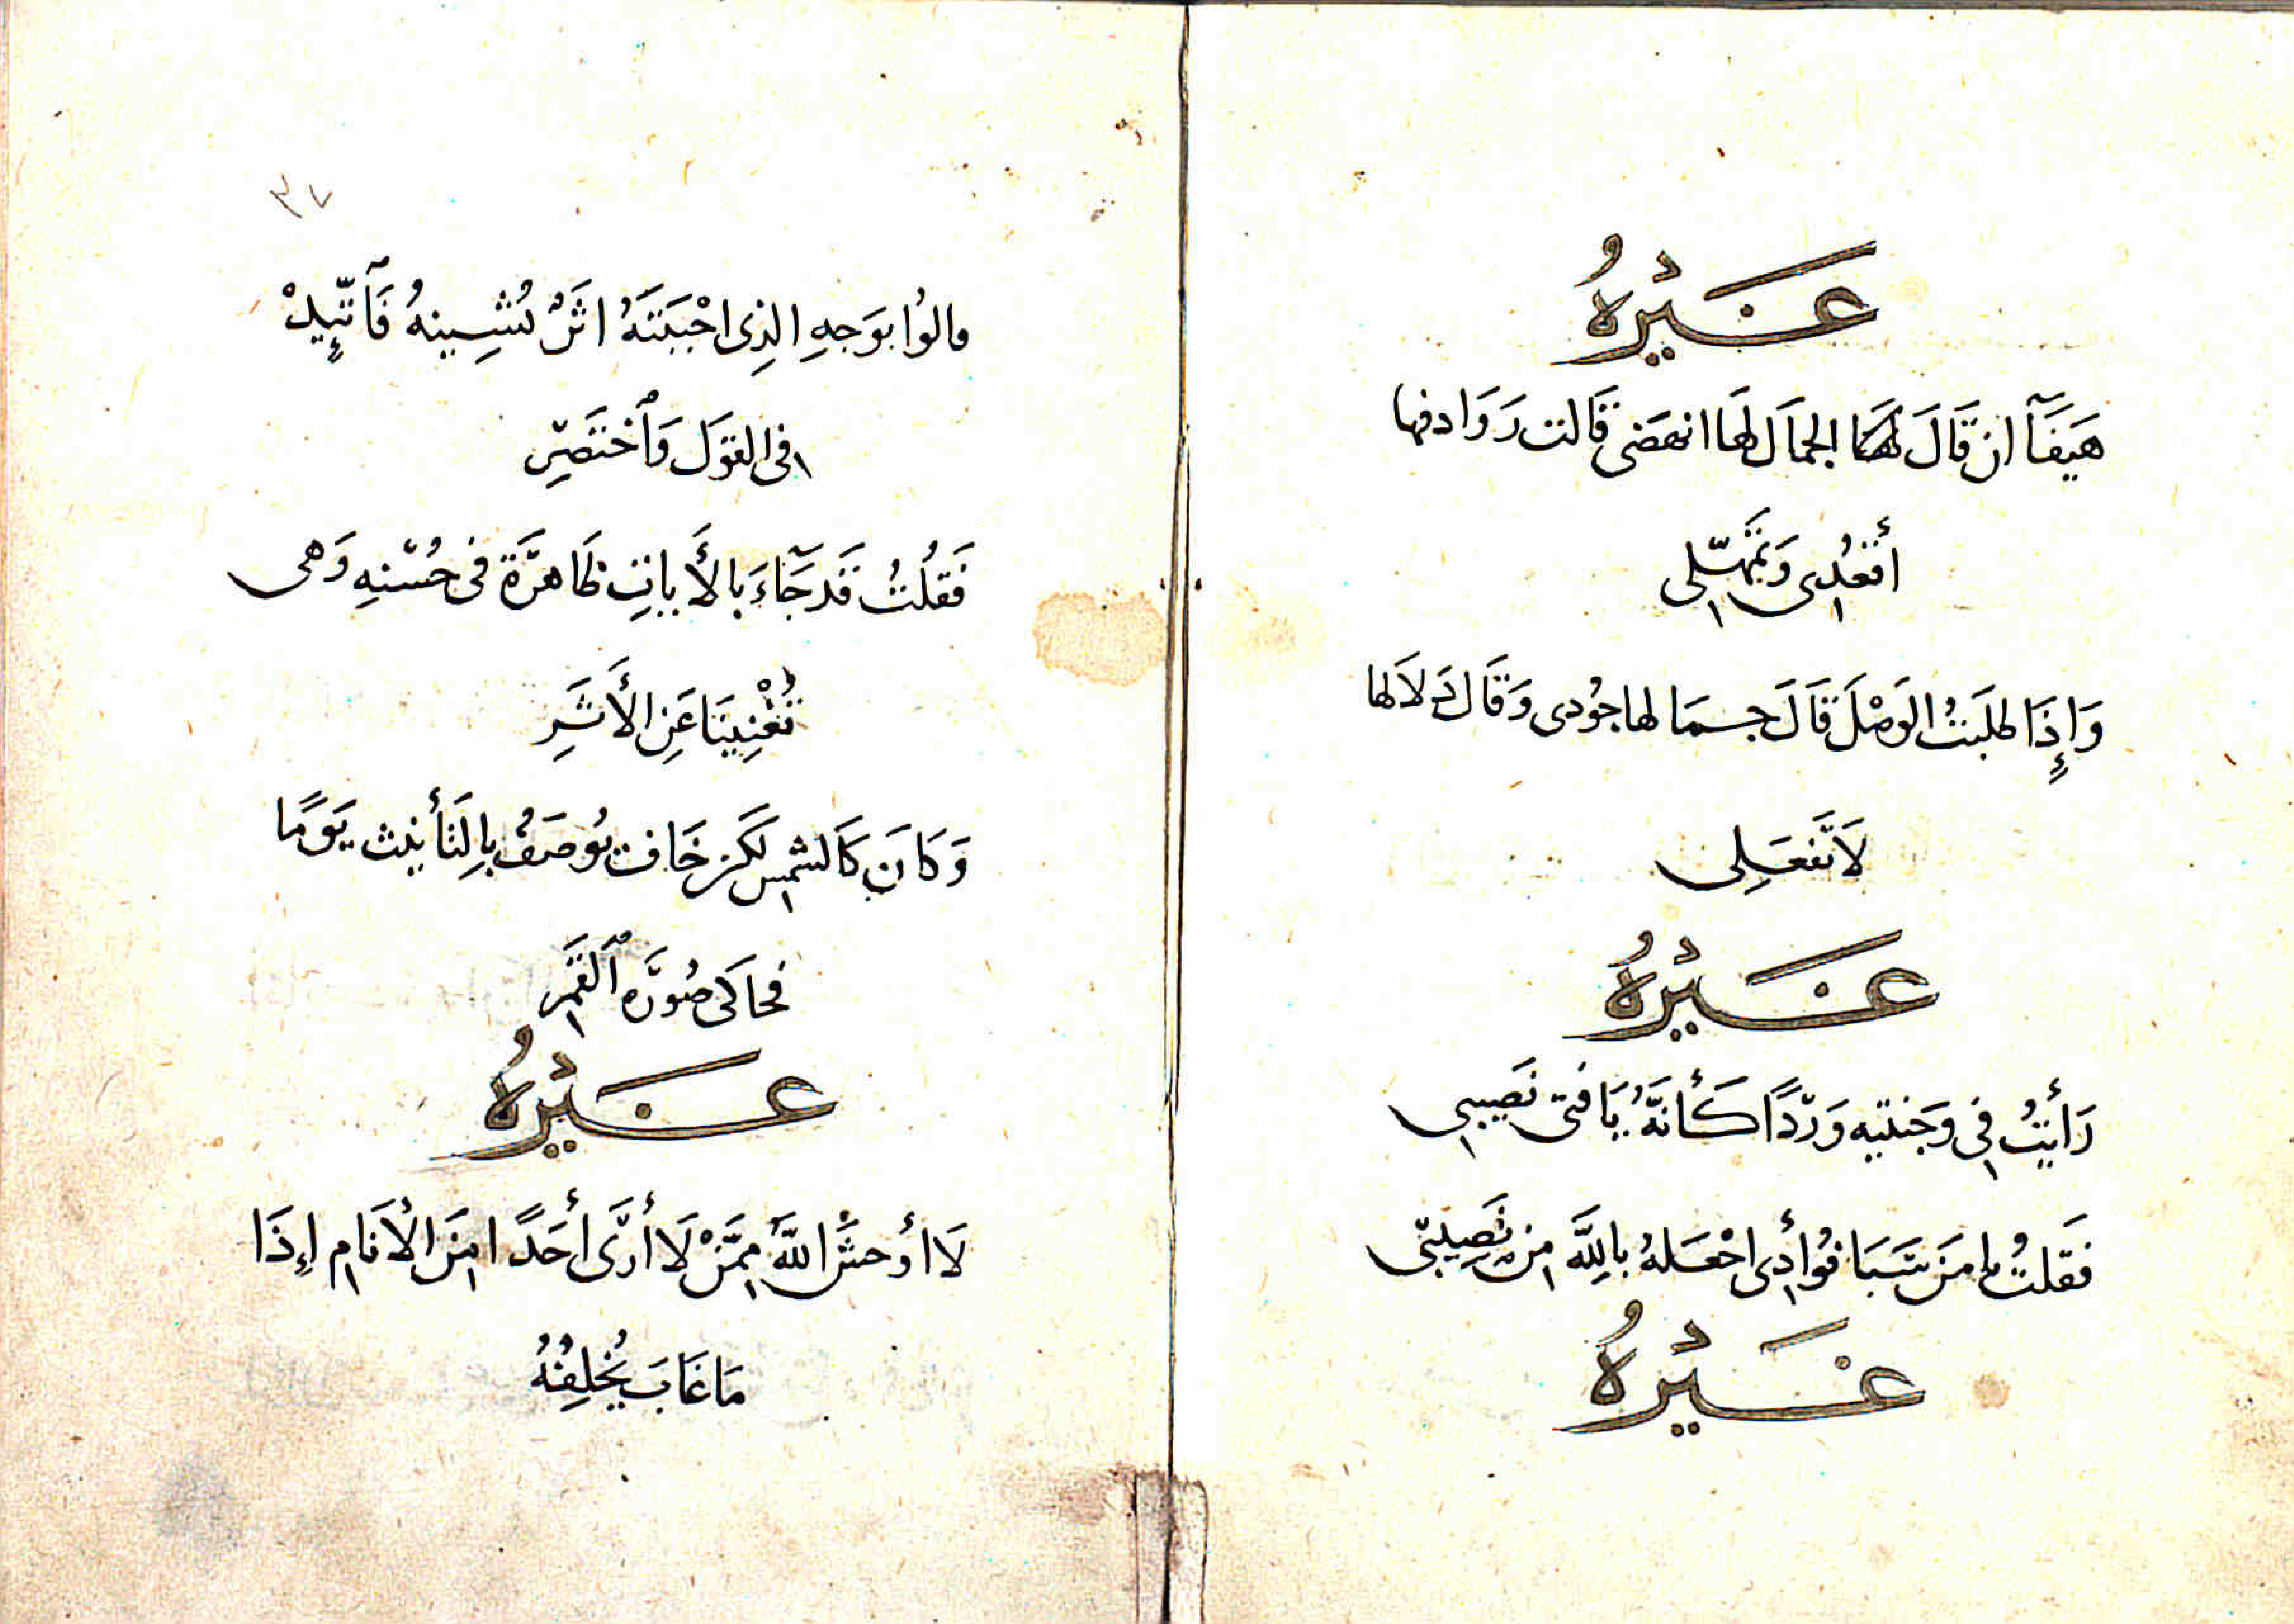 غَيْرُهُ
هَيفَآ ان قَالَ لها الجمَال لهَا انهضَى قَالت رَوَادفها
أقعُدِى وَتمَهّلِى
وَإِذَا طلَبتُ الوَصْلَ قَالَ جسمَا لها جوُدى وَقَال دَلَالها
لَا تَفعَلِى
غَيْرُهُ
رَأيتُ فِى وَجنتيه وَردًا كَأنَهُ يَا فتى نَصِيبى
فَقلتُ يا مَن سَبَا فُوأدِى اجْعَلهُ بِاللَّه مِن نَصِيبِى
غَيْرُهُ
٣٧
مالوُا بوَجهِ الذِى احْبَبتَهُ اثَرٌ تُشِينهُ فَآتَّيِدْ
فى القوَل وَٱختَصِرِ
فَقلُتُ قَد جَآءَ بالأَياتِ ظَاهرَة فى حُسْنهِ وَهى
تُغْنِينَا عَنِ الأَثَرِ
وَكَانَ كَالشمسِ لكَن خَافَ يوُصَفُ بِالتَأنيث يَومًا
فحَاكَى صُورَةِ ٱلقَمَرِ
غَيْرُهُ
لَا أوحشَ اللَّهُ مِمَّنْ لَا أرَى أحَدًا مِنَ الأَنَامِ إِذَا
مَا غَابَ يُخلِفُهُ